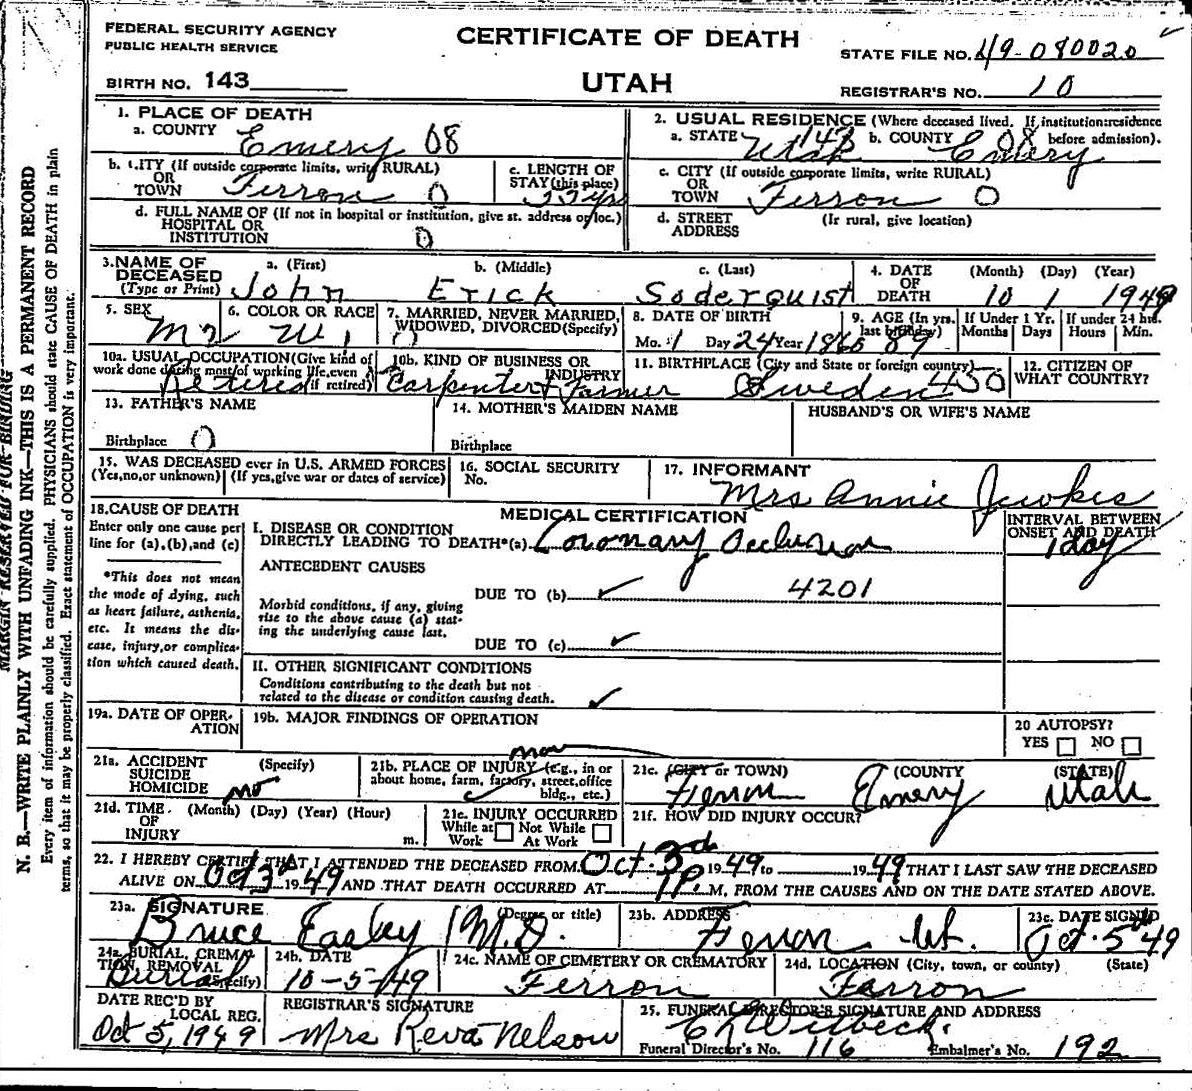 FEDERAL SECURITY AGENCY
PUBLIC HEALTH SERVICE
CERTIFICATE OF DEATH
STATE FILE NO. 49-080020
BIRTH NO. 143
UTAH
REGISTRAR'S NO. 10
1. PLACE OF DEATH
a. COUNTY Emery 08
2. USUAL RESIDENCE (Where deceased lived. If institution: residence before admission).
a. STATE Utah 143 b. COUNTY Emery 08
b. CITY (If outside corporate limits, write RURAL)
OR
TOWN Ferron 0
c. LENGTH OF
STAY (this place)
yrs
c. CITY (If outside corporate limits, write RURAL)
OR
TOWN Ferron 0
d. FULL NAME OF (If not in hospital or institution, give st. address or loc.)
HOSPITAL OR
INSTITUTION 0
d. STREET (If rural, give location)
ADDRESS
3. NAME OF DECEASED
(Type or Print)
a. (First) b. (Middle) c. (Last)
John Erick Soderquist
4. DATE OF DEATH (Month) (Day) (Year)
10 1 1949
5. SEX
M
6. COLOR OR RACE
W 1
7. MARRIED, NEVER MARRIED,
WIDOWED, DIVORCED (Specify)
8. DATE OF BIRTH
Mo. 1 Day 24 Year 1860
9. AGE (In yrs. last birthday) 89
If Under 1 Yr. Months Days
If under 24 hrs. Hours Min.
10a. USUAL OCCUPATION (Give kind of
work done during most of working life, even
if retired) Retired
10b. KIND OF BUSINESS OR
INDUSTRY
Carpenter & Farmer
11. BIRTHPLACE (City and State or foreign country)
Sweden 450
12. CITIZEN OF
WHAT COUNTRY?
13. FATHER'S NAME
Birthplace 0
14. MOTHER'S MAIDEN NAME
Birthplace
HUSBAND'S OR WIFE'S NAME
15. WAS DECEASED ever in U.S. ARMED FORCES
(Yes, no, or unknown) (If yes, give war or dates of service)
16. SOCIAL SECURITY
No.
17. INFORMANT
Mrs Annie Jewkes
18. CAUSE OF DEATH
Enter only one cause per
line for (a), (b), and (c)
*This does not mean
the mode of dying, such
as heart failure, asthenia,
etc. It means the dis-
ease, injury, or complica-
tion which caused death.
MEDICAL CERTIFICATION
INTERVAL BETWEEN
ONSET AND DEATH
1 day
I. DISEASE OR CONDITION
DIRECTLY LEADING TO DEATH*(a) Coronary Occlusion
ANTECEDENT CAUSES
DUE TO (b) ✓ 4201
Morbid conditions, if any, giving
rise to the above cause (a) stat-
ing the underlying cause last.
DUE TO (c) ✓
II. OTHER SIGNIFICANT CONDITIONS
Conditions contributing to the death but not
related to the disease or condition causing death. ✓
19a. DATE OF OPER-
ATION
19b. MAJOR FINDINGS OF OPERATION
20 AUTOPSY?
YES NO
21a. ACCIDENT (Specify)
SUICIDE
HOMICIDE no
21b. PLACE OF INJURY (e.g., in or
about home, farm, factory, street, office
bldg., etc.)
21c. (CITY or TOWN) (COUNTY (STATE)
Ferron Emery Utah
21d. TIME (Month) (Day) (Year) (Hour)
OF
INJURY m.
21e. INJURY OCCURRED
While at Work Not While At Work
21f. HOW DID INJURY OCCUR?
22. I HEREBY CERTIFY THAT I ATTENDED THE DECEASED FROM Oct. 3rd 1949 to 1949 THAT I LAST SAW THE DECEASED
ALIVE ON Oct 3rd 1949 AND THAT DEATH OCCURRED AT 1 P. M, FROM THE CAUSES AND ON THE DATE STATED ABOVE.
23a. SIGNATURE (Degree or title)
Bruce Easley M.D.
23b. ADDRESS
Ferron Ut.
23c. DATE SIGNED
Oct. 5th 49
24a. BURIAL, CREMA-
TION, REMOVAL
(Specify) Burial
24b. DATE
10-5-49
24c. NAME OF CEMETERY OR CREMATORY
Ferron
24d. LOCATION (City, town, or county) (State)
Ferron
DATE REC'D BY
LOCAL REG.
Oct 5, 1949
REGISTRAR'S SIGNATURE
Mrs Reva Nelson
25. FUNERAL DIRECTOR'S SIGNATURE AND ADDRESS
Witbeck.
Funeral Director's No. 116 Embalmer's No. 192
MARGIN RESERVED FOR BINDING
N. B.—WRITE PLAINLY WITH UNFADING INK—THIS IS A PERMANENT RECORD
Every item of information should be carefully supplied. PHYSICIANS should state CAUSE OF DEATH in plain
terms, so that it may be properly classified. Exact statement of OCCUPATION is very important.